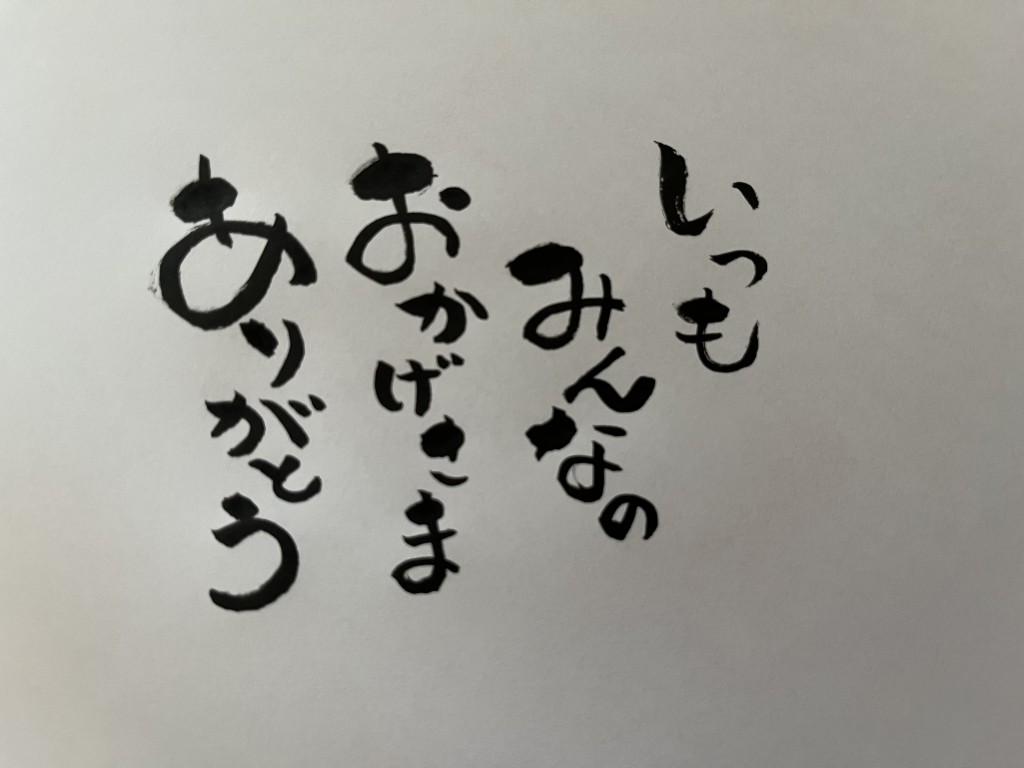 いつも
みんなの
おかげさま
ありがとう